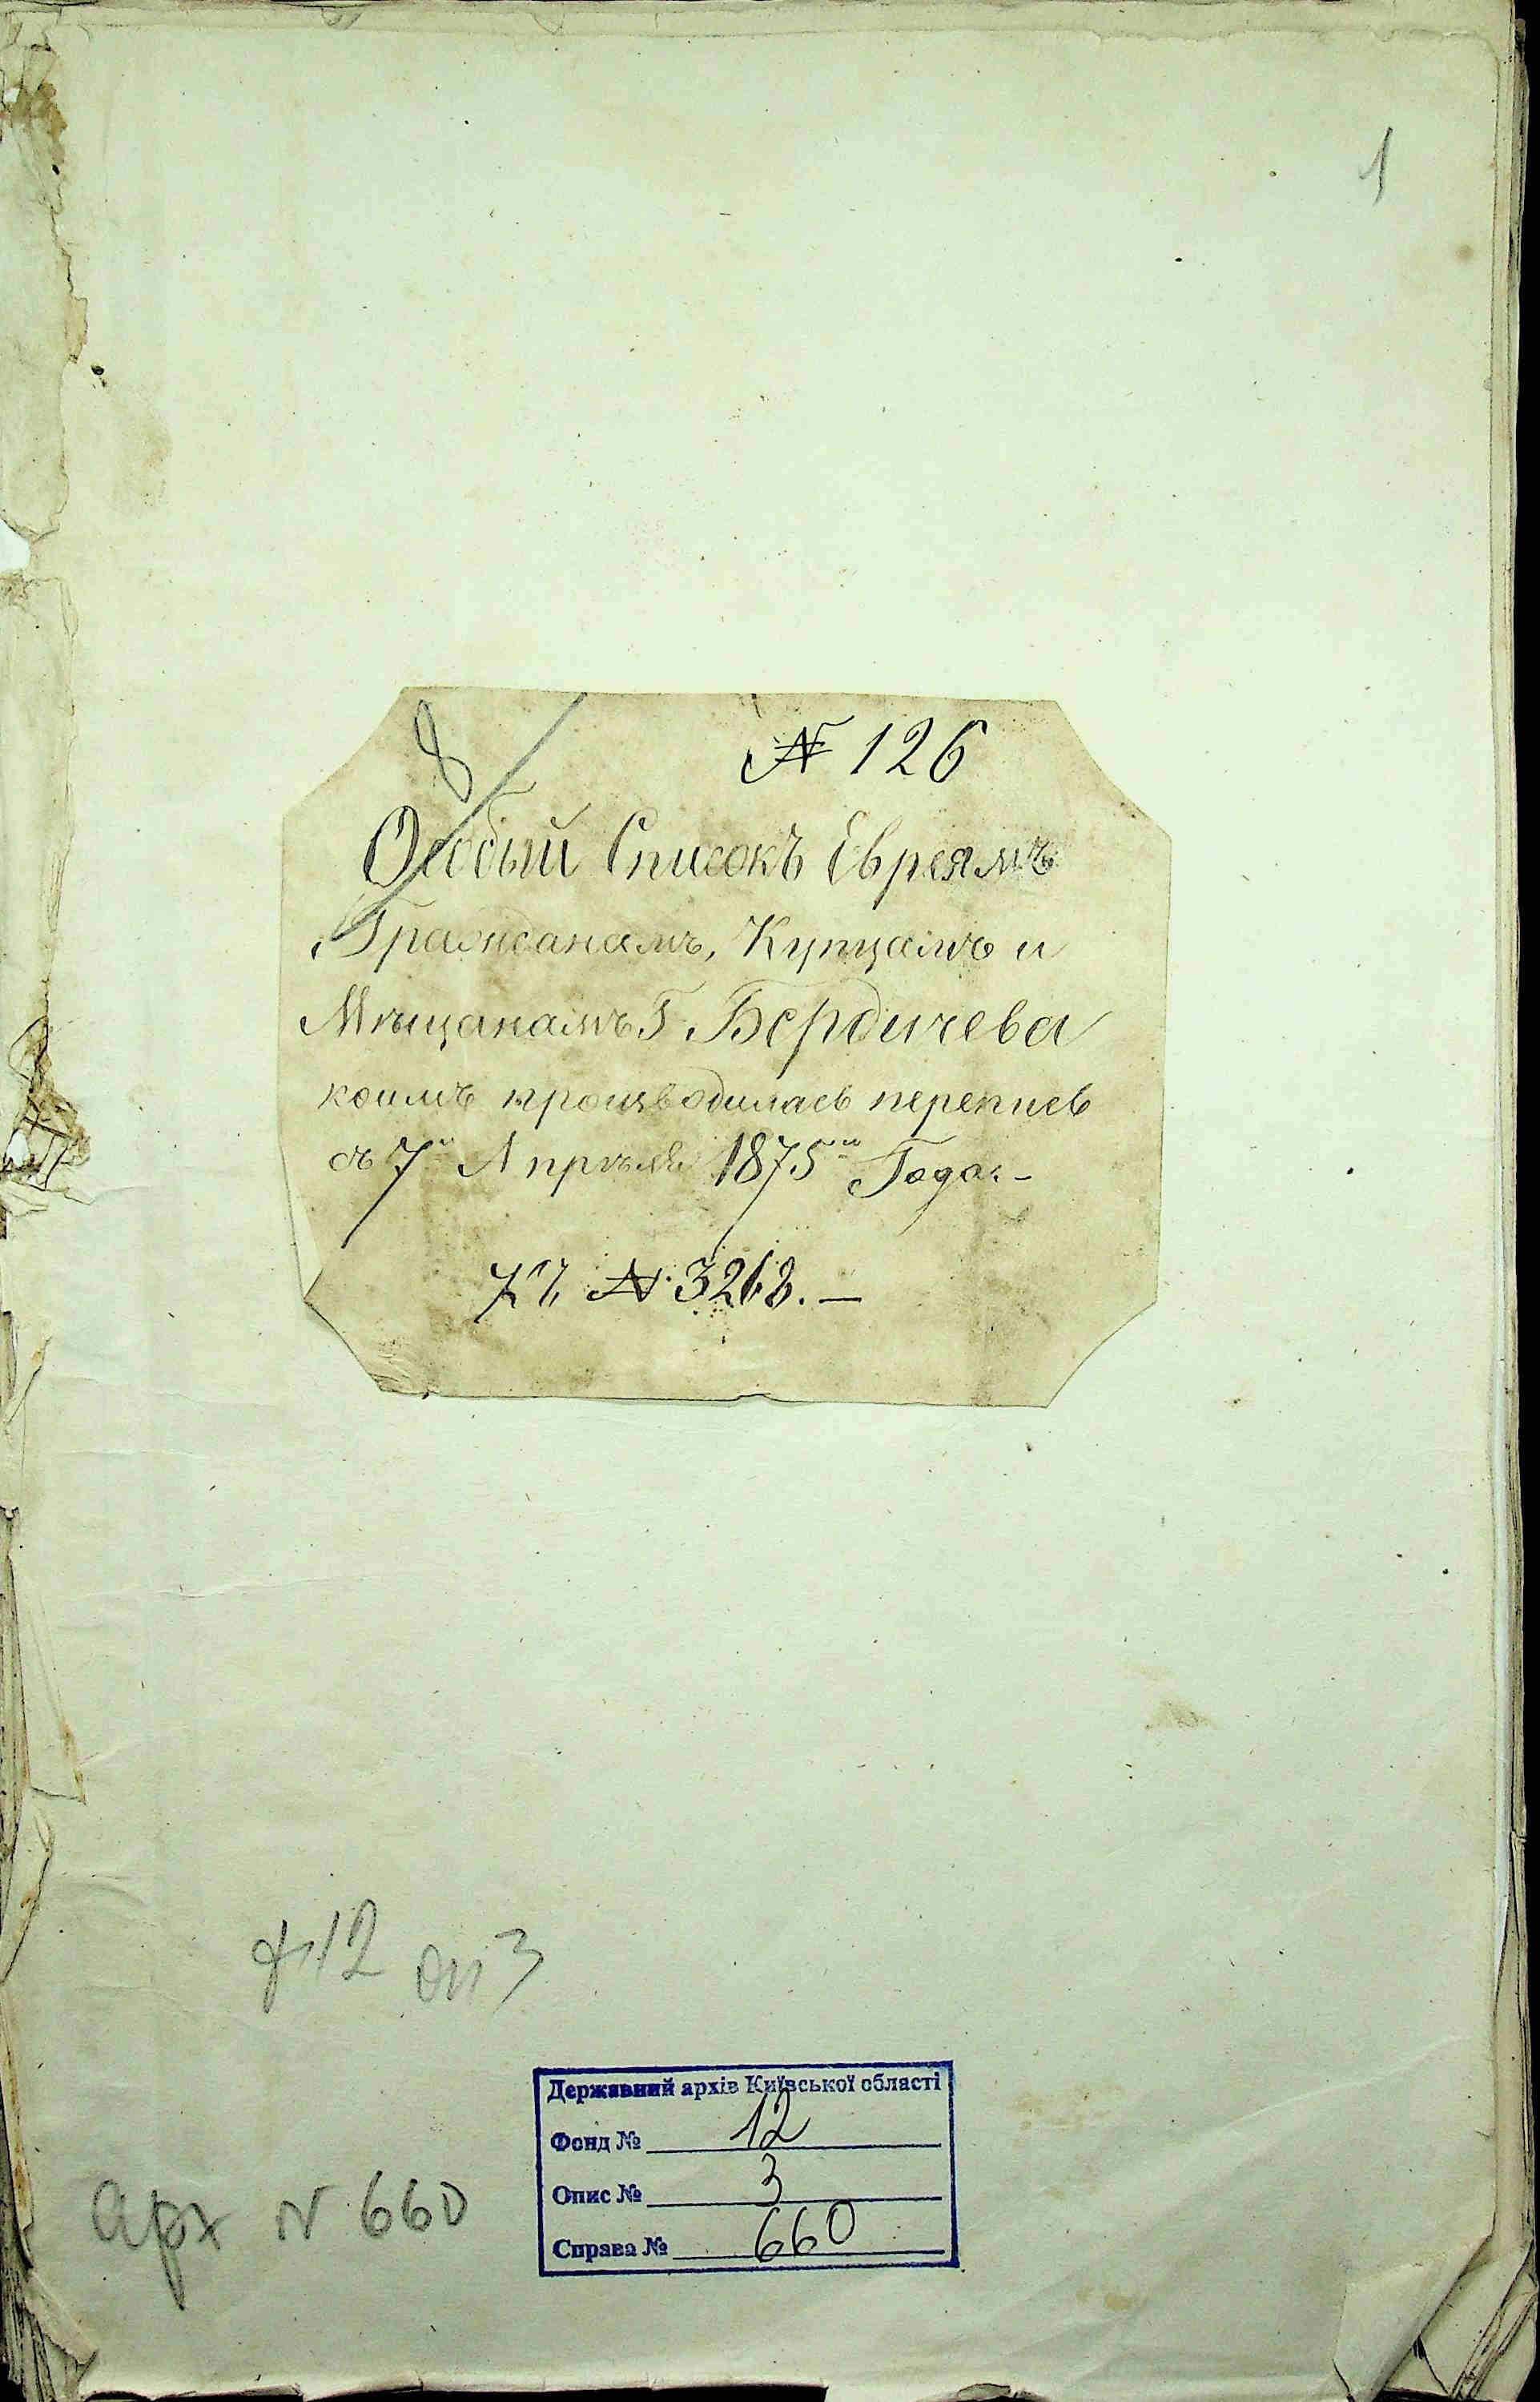 1
8
№ 126
Особый Списокъ Евреямъ
Гражданамъ, Купцамъ и
Мѣщанамъ Г. Бердичева
коимъ производилась перепись
съ 7го Апрѣля 1875го Года.-
№ 3268.—
ф 12 оп 3
Державний архів Київської області
Фонд № 12
Опис № 3
Справа № 660
Арх N 660